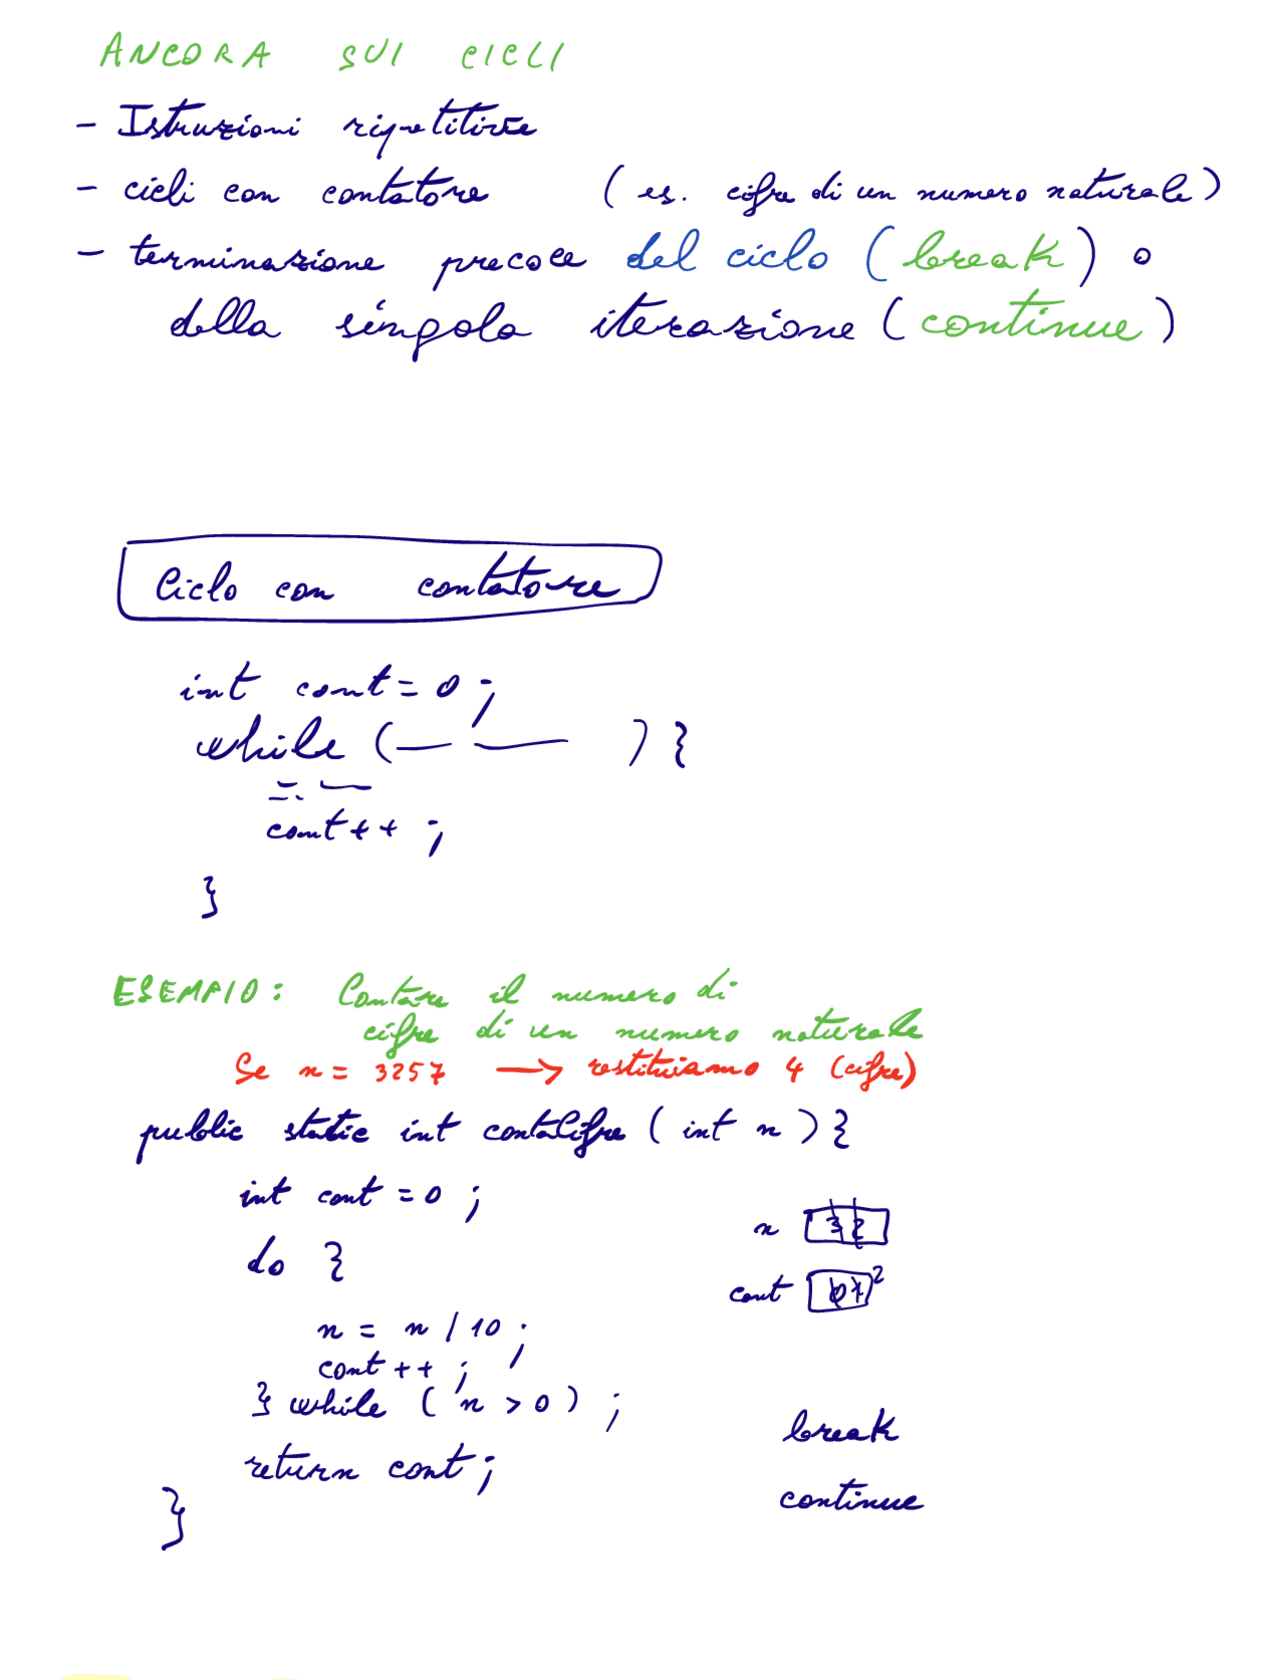 ANCORA SUI CICLI
- Istruzioni ripetitive
- cicli con contatore (es. cifre di un numero naturale)
- terminazione precoce del ciclo (break) o
della singola iterazione (continue)
Ciclo con contatore
int cont = 0 ;
while ( ) {
cont++ ;
}
ESEMPIO: Contare il numero di
cifre di un numero naturale
Se n = 3257 → restituiamo 4 (cifre)
public static int contaCifre ( int n ) {
int cont = 0 ;
do {
n = n / 10 ;
cont ++ ;
} while ( n > 0 ) ;
return cont ;
}
n 32
cont 0 1 2
break
continue